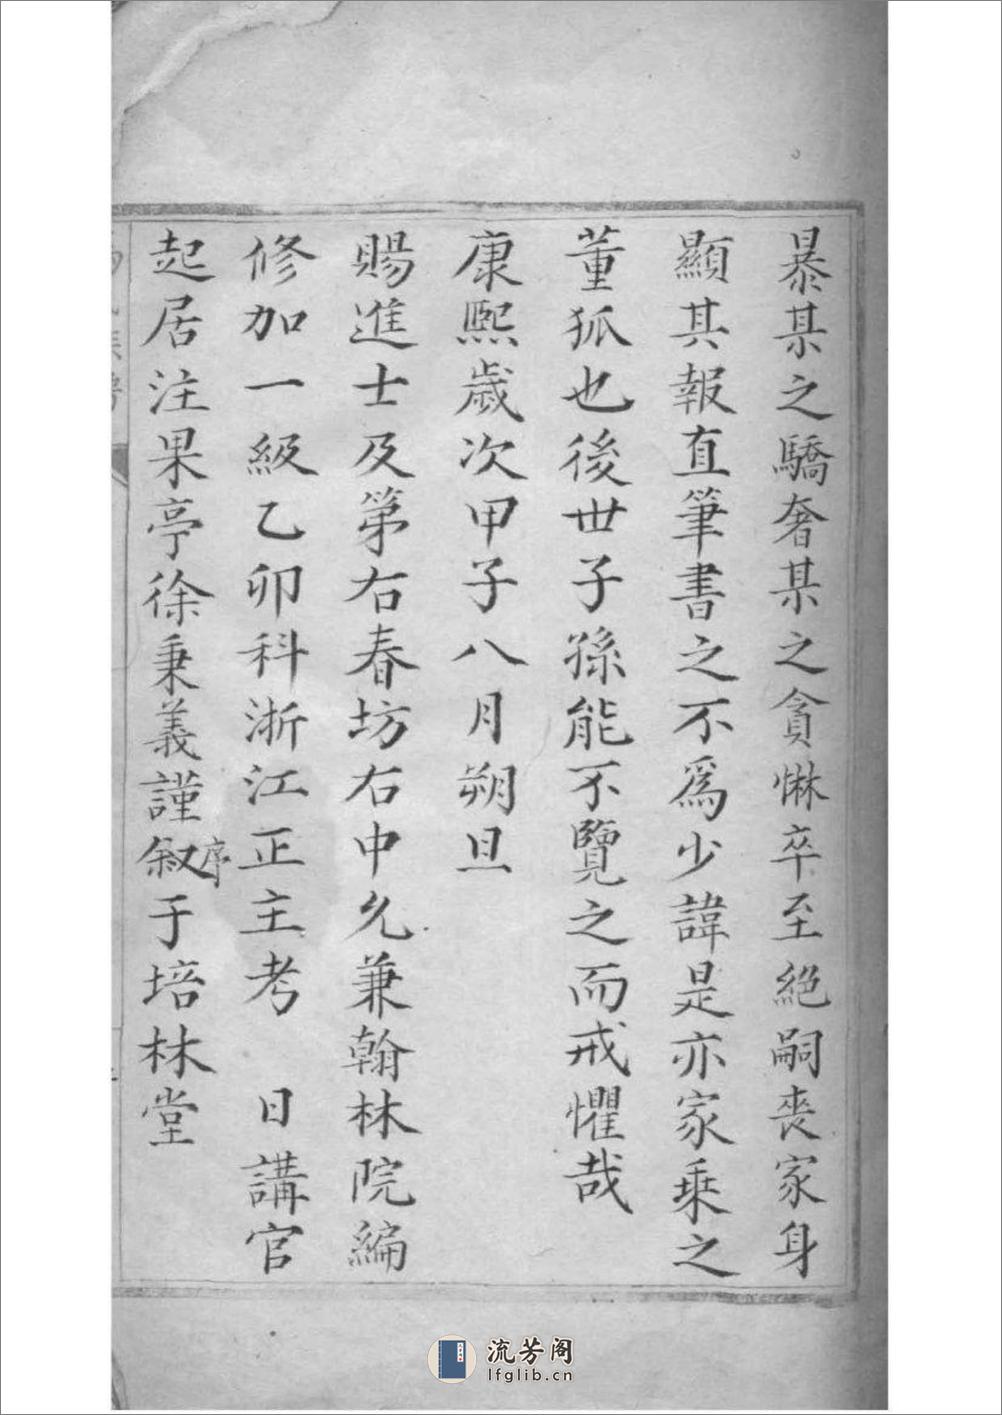 暴某之驕奢某之貪惏卒至絕嗣喪家身
顯其報直筆書之不爲少諱是亦家乘之
董狐也後世子孫能不覽之而戒懼哉
康熙歲次甲子八月朔旦
賜進士及第右春坊右中允兼翰林院編
修加一級乙卯科浙江正主考 日講官
起居注果亭徐秉義謹叙于培林堂
序
流芳阁
lfglib.cn